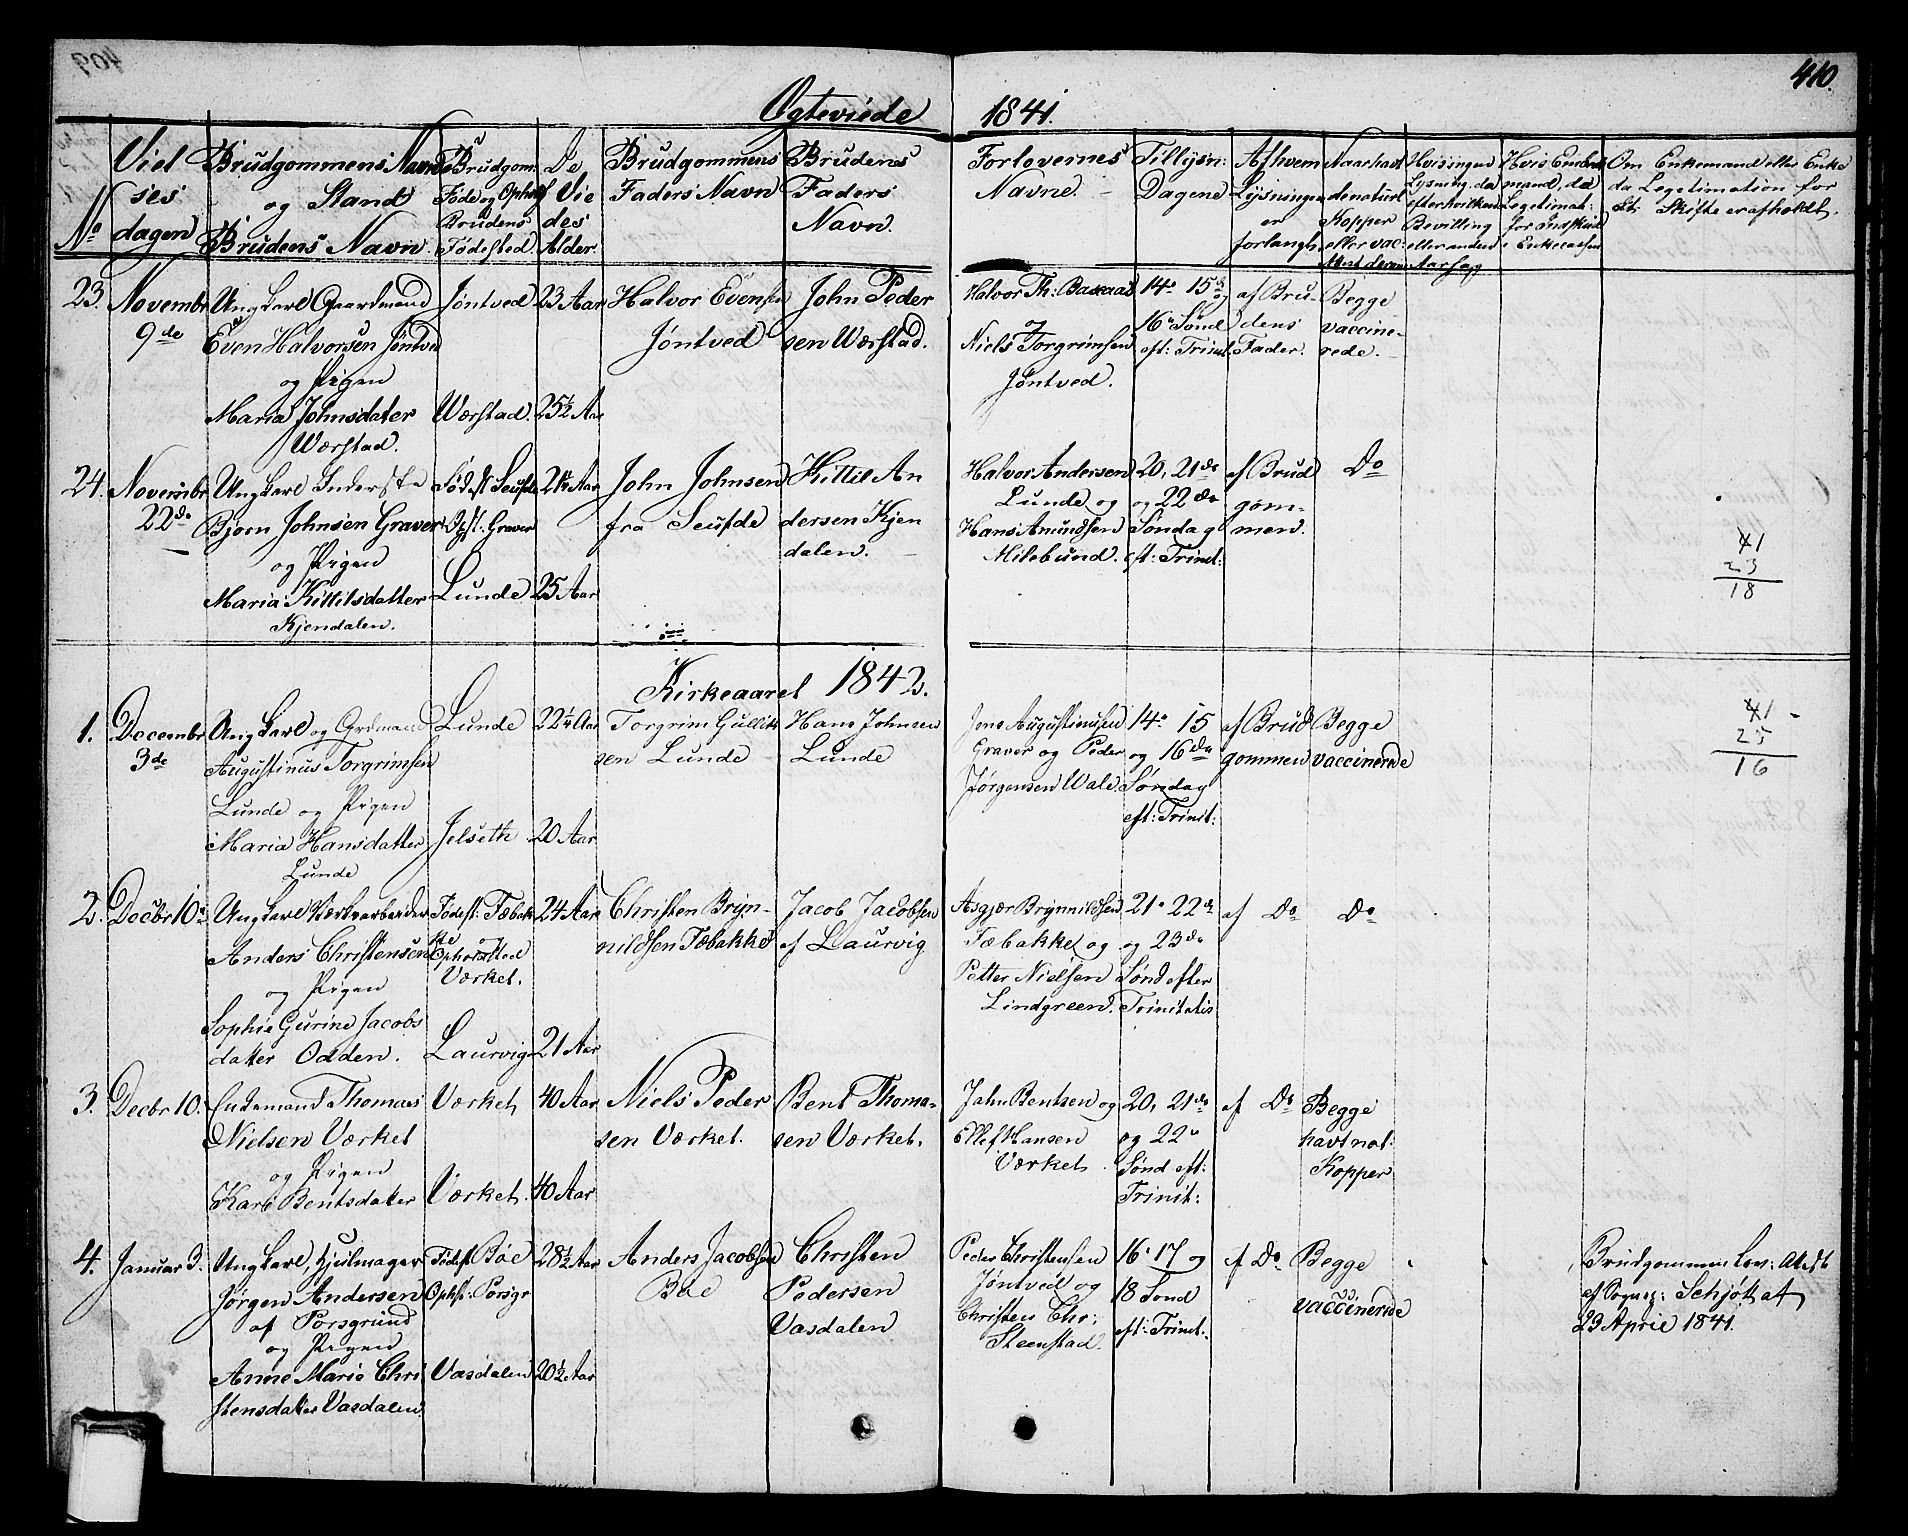 409
410.
Ægteviede 1841.
No
Viel
ses
dagen
Brudgommens Navn
og Stand
Brudens Navn.
Brudgom:
Føde og Ophst
Brudens
Fødested
De
Vie
des
Alder.
Brudgommens
Faders Navn
Brudens
Faders
Navn.
Forlovernes
Navne.
Tillysn:
Dagene
Af hvem
Lysningen
er
forlangt.
Naar havt
de naturl
Kopper
eller vac:
Hvis ingen
Lysning, da
efter hvilken
Bevilling
eller anden
Aarsag
Hvis Enke
mand, da
Legetimat:
for Indskud
i Enkecassen
Om Enkemand eller Enke
da Legetimation for
at Skifte er afholdt.
23. Novembr
9de
Ungkarl Gaardmand
Even Halvorsen Jøntved
og Pigen
Maria Johnsdater
Wærstad.
Jøntved
Wærstad.
23 Aar
25½ Aar
Halvor Evensen
Jøntved
John Peder
sen Wærstad.
Halvor Th: Baxaas
Niels Torgrimsen
Jøntved.
14de 15de og
16de Sønd
eft: Trinit.
af Bru-
dens
Fader.
Begge
vaccine-
rede.
24. Novembr
22de
Ungkarl Inderste
Bjørn Johnsen Graver
og Pigen
Maria Kittilsdatter
Kjendalen.
Fødest Seufde
Opst: Graver
Lunde
21¼ Aar
25 Aar
John Johnsen
fra Seufde
Kittil An
dersen Kjen
dalen.
Halvor Andersen
Lunde og
Hans Amundsen
Milebund.
20, 21de
og 22de
Søndag
eft: Trinit:
af Brud
gom-
men.
Do
41
23
18
Kirkeaaret 1842.
1. Decembr
3de
Ungkarl og Grdmand
Augustinus Torgrimsen
Lunde og Pigen
Maria Hansdatter
Lunde
Lunde
Jelseth
22¼ Aar
20 Aar
Torgrim Gullik
sen Lunde
Hans Johnsen
Lunde
Jens Augustinusen
Graver og Peder
Jørgensen Wale
14de 15
og 16de
Søndag
eft: Trinit:
af Brud
gommen
Begge
vaccinerede
41
25
16
2. Decbr 10de
Ungkarl Værksarbeider
Anders Christensen
og Pigen
Sophie Gurine Jacobs
datter Odden.
Fødest: Tæbak
ke og
Ophodsted
Værket.
Laurvig
24 Aar
21 Aar
Christen Bryn-
nildsen Tæbakke
Jacob Jacobsen
af Laurvig
Asgjær Brynnildsen
Tæbakke og
Petter Nielsen
Lindgreen.
21de 22de
og 23de
Sønd efter
Trinitatis
af Do
Do
3. Decbr 10.
Enkemand Thomas
Nielsen Værket
og Pigen
Kari Bentsdatter
Værket
Værket.
40 Aar
40 Aar
Niels Peder
sen Værket.
Bent Thoma-
sen Værket.
Jahn Bentsen og
Ellef Hansen
Værket
20, 21de
og 22de
Sønd eft:
Trinit:
af Do
Begge
havt nat:
Kopper
4. Januar 3.
Ungkarl, Hjulmager
Jørgen Andersen
af Porsgrund
og Pigen
Anne Marie Chri
stensdatter Vasdalen
Fødest Bøe
Ophst: Porsgr
Vasdalen
28½ Aar
20½ Aar
Anders Jacobsen
Bøe
Christen
Pedersen
Vasdalen
Peder Christensen
Jøntved og
Christen Chr:
Steenstad.
16de 17 og
18 Sønd
eft: Trinit.
af Do
Begge
vaccinerede
Brudgommen Lev: Attest
af Sogner: Schjøtt af
23 April 1841.